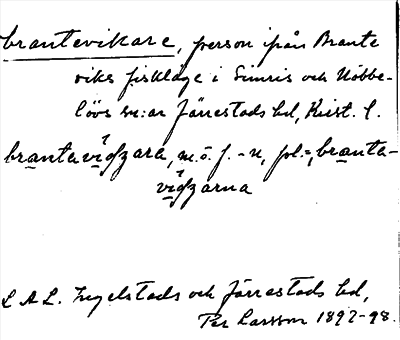 brantevikare, person från Brante
viks fiskläge i Simris och Nöbbe-
lövs sn:ar Järrestads hd, Krist. l.
brantavidzara, m. o. f. -n, pl.=, branta-
vidzarna
L A L. Ingelstads och Järrestads hd,
Per Larsson 1892-98.